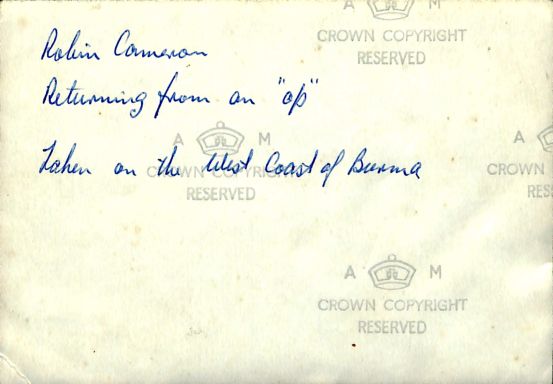 A M
CROWN COPYRIGHT
RESERVED
Robin Cameron
Returning from an "op"
A M
CROWN COPYRIGHT
RESERVED
A
CROWN
RES
Taken on the West Coast of Burma
A M
CROWN COPYRIGHT
RESERVED